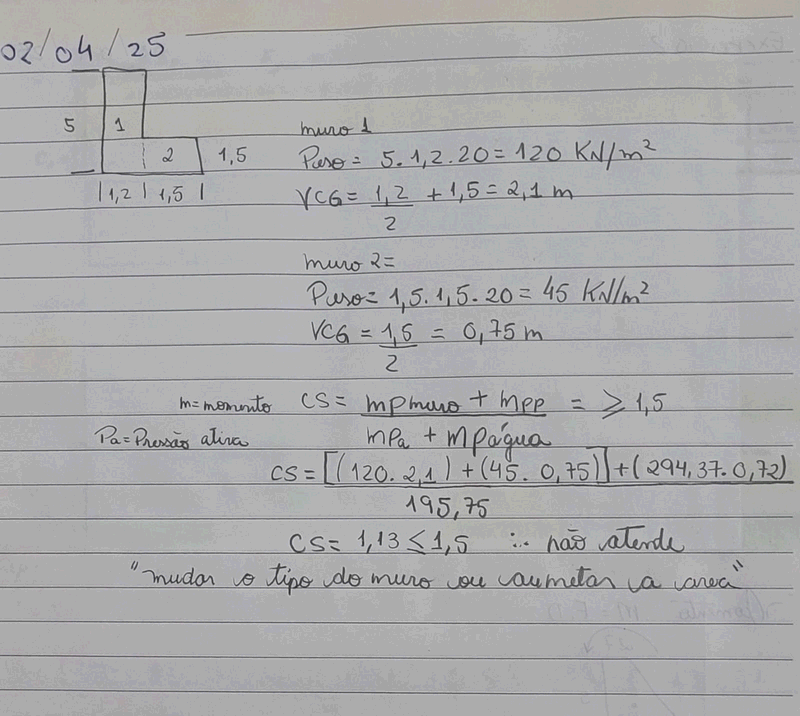 02/04/25
5 1
2 1,5
1,2 1,5
muro 1
Peso = 5. 1,2. 20 = 120 KN/m²
VCG = 1,2/2 + 1,5 = 2,1 m
muro 2 =
Peso = 1,5. 1,5. 20 = 45 KN/m²
VCG = 1,5/2 = 0,75 m
m = momento CS = mPmuro + mPP = ≥ 1,5
Pa = Pressão ativa mPa + MPágua
CS = [(120. 2,1) + (45. 0,75)] + (294,37. 0,72)
195,75
CS = 1,13 ≤ 1,5 ∴ não atende
"mudar o tipo do muro ou aumetar a area"